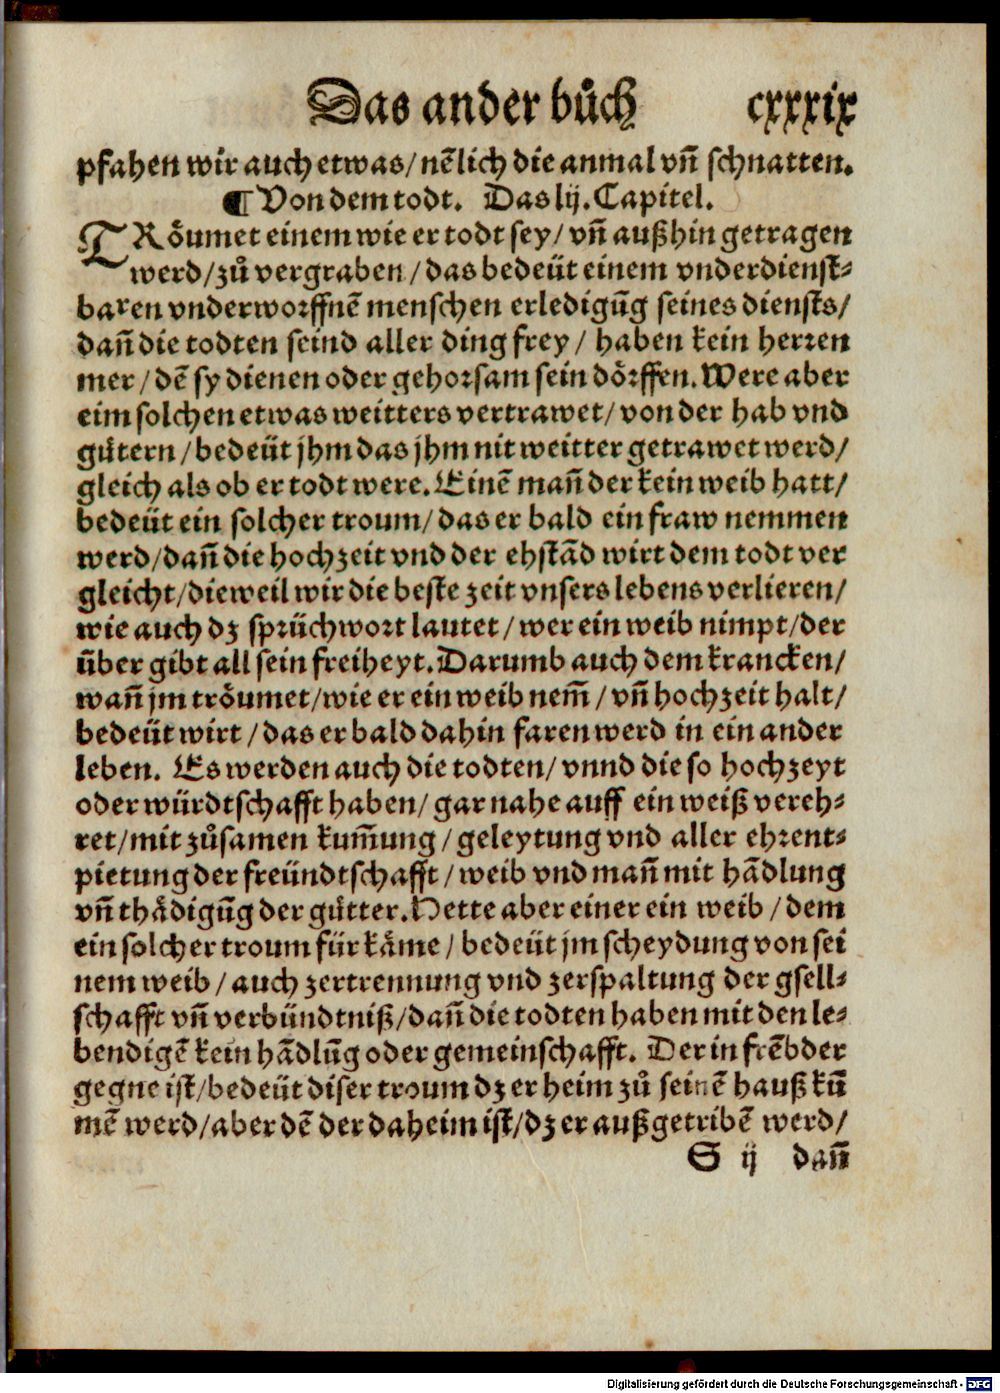 Das ander bůch cxxxix
pfahen wir auch etwas/ nēlich die anmal vñ schnatten.
¶ Von dem todt. Das lij. Capitel.
TRöumet einem wie er todt sey/ vñ außhin getragen
werd/ zů vergraben/ das bedeüt einem vnderdienst⸗
baren vnderworffnē menschen erledigūg seines diensts/
dañ die todten seind aller ding frey/ haben kein herren
mer/ dē sy dienen oder gehorsam sein dörffen. Were aber
eim solchen etwas weitters vertrawet/ von der hab vnd
gütern/ bedeüt jhm das jhm nit weitter getrawet werd/
gleich als ob er todt were. Einē mañ der kein weib hatt/
bedeüt ein solcher troum/ das er bald ein fraw nemmen
werd/ dañ die hochzeit vnd der ehstād wirt dem todt ver
gleicht/ dieweil wir die beste zeit vnsers lebens verlieren/
wie auch dz sprüchwort lautet/ wer ein weib nimpt/ der
über gibt all sein freiheyt. Darumb auch dem krancken/
wañ jm tröumet/ wie er ein weib nem̄/ vñ hochzeit halt/
bedeüt wirt/ das er bald dahin faren werd in ein ander
leben. Es werden auch die todten/ vnnd die so hochzeyt
oder würdtschafft haben/ gar nahe auff ein weiß vereh⸗
ret/ mit zůsamen kum̄ung/ geleytung vnd aller ehrent⸗
pietung der freündtschafft/ weib vnd mañ mit hādlung
vñ thädigūg der gütter. Hette aber einer ein weib/ dem
ein solcher troum für käme/ bedeüt jm scheydung von sei
nem weib/ auch zertrennung vnd zerspaltung der gsell⸗
schafft vñ verbündtniß/ dañ die todten haben mit den le⸗
bendigē kein hādlūg oder gemeinschafft. Der in frēbder
gegne ist/ bedeüt diser troum dz er heim zů seinē hauß kū
mē werd/ aber dē der daheim ist/ dz er außgetribē werd/
S ij dañ
Digitalisierung gefördert durch die Deutsche Forschungsgemeinschaft - DFG